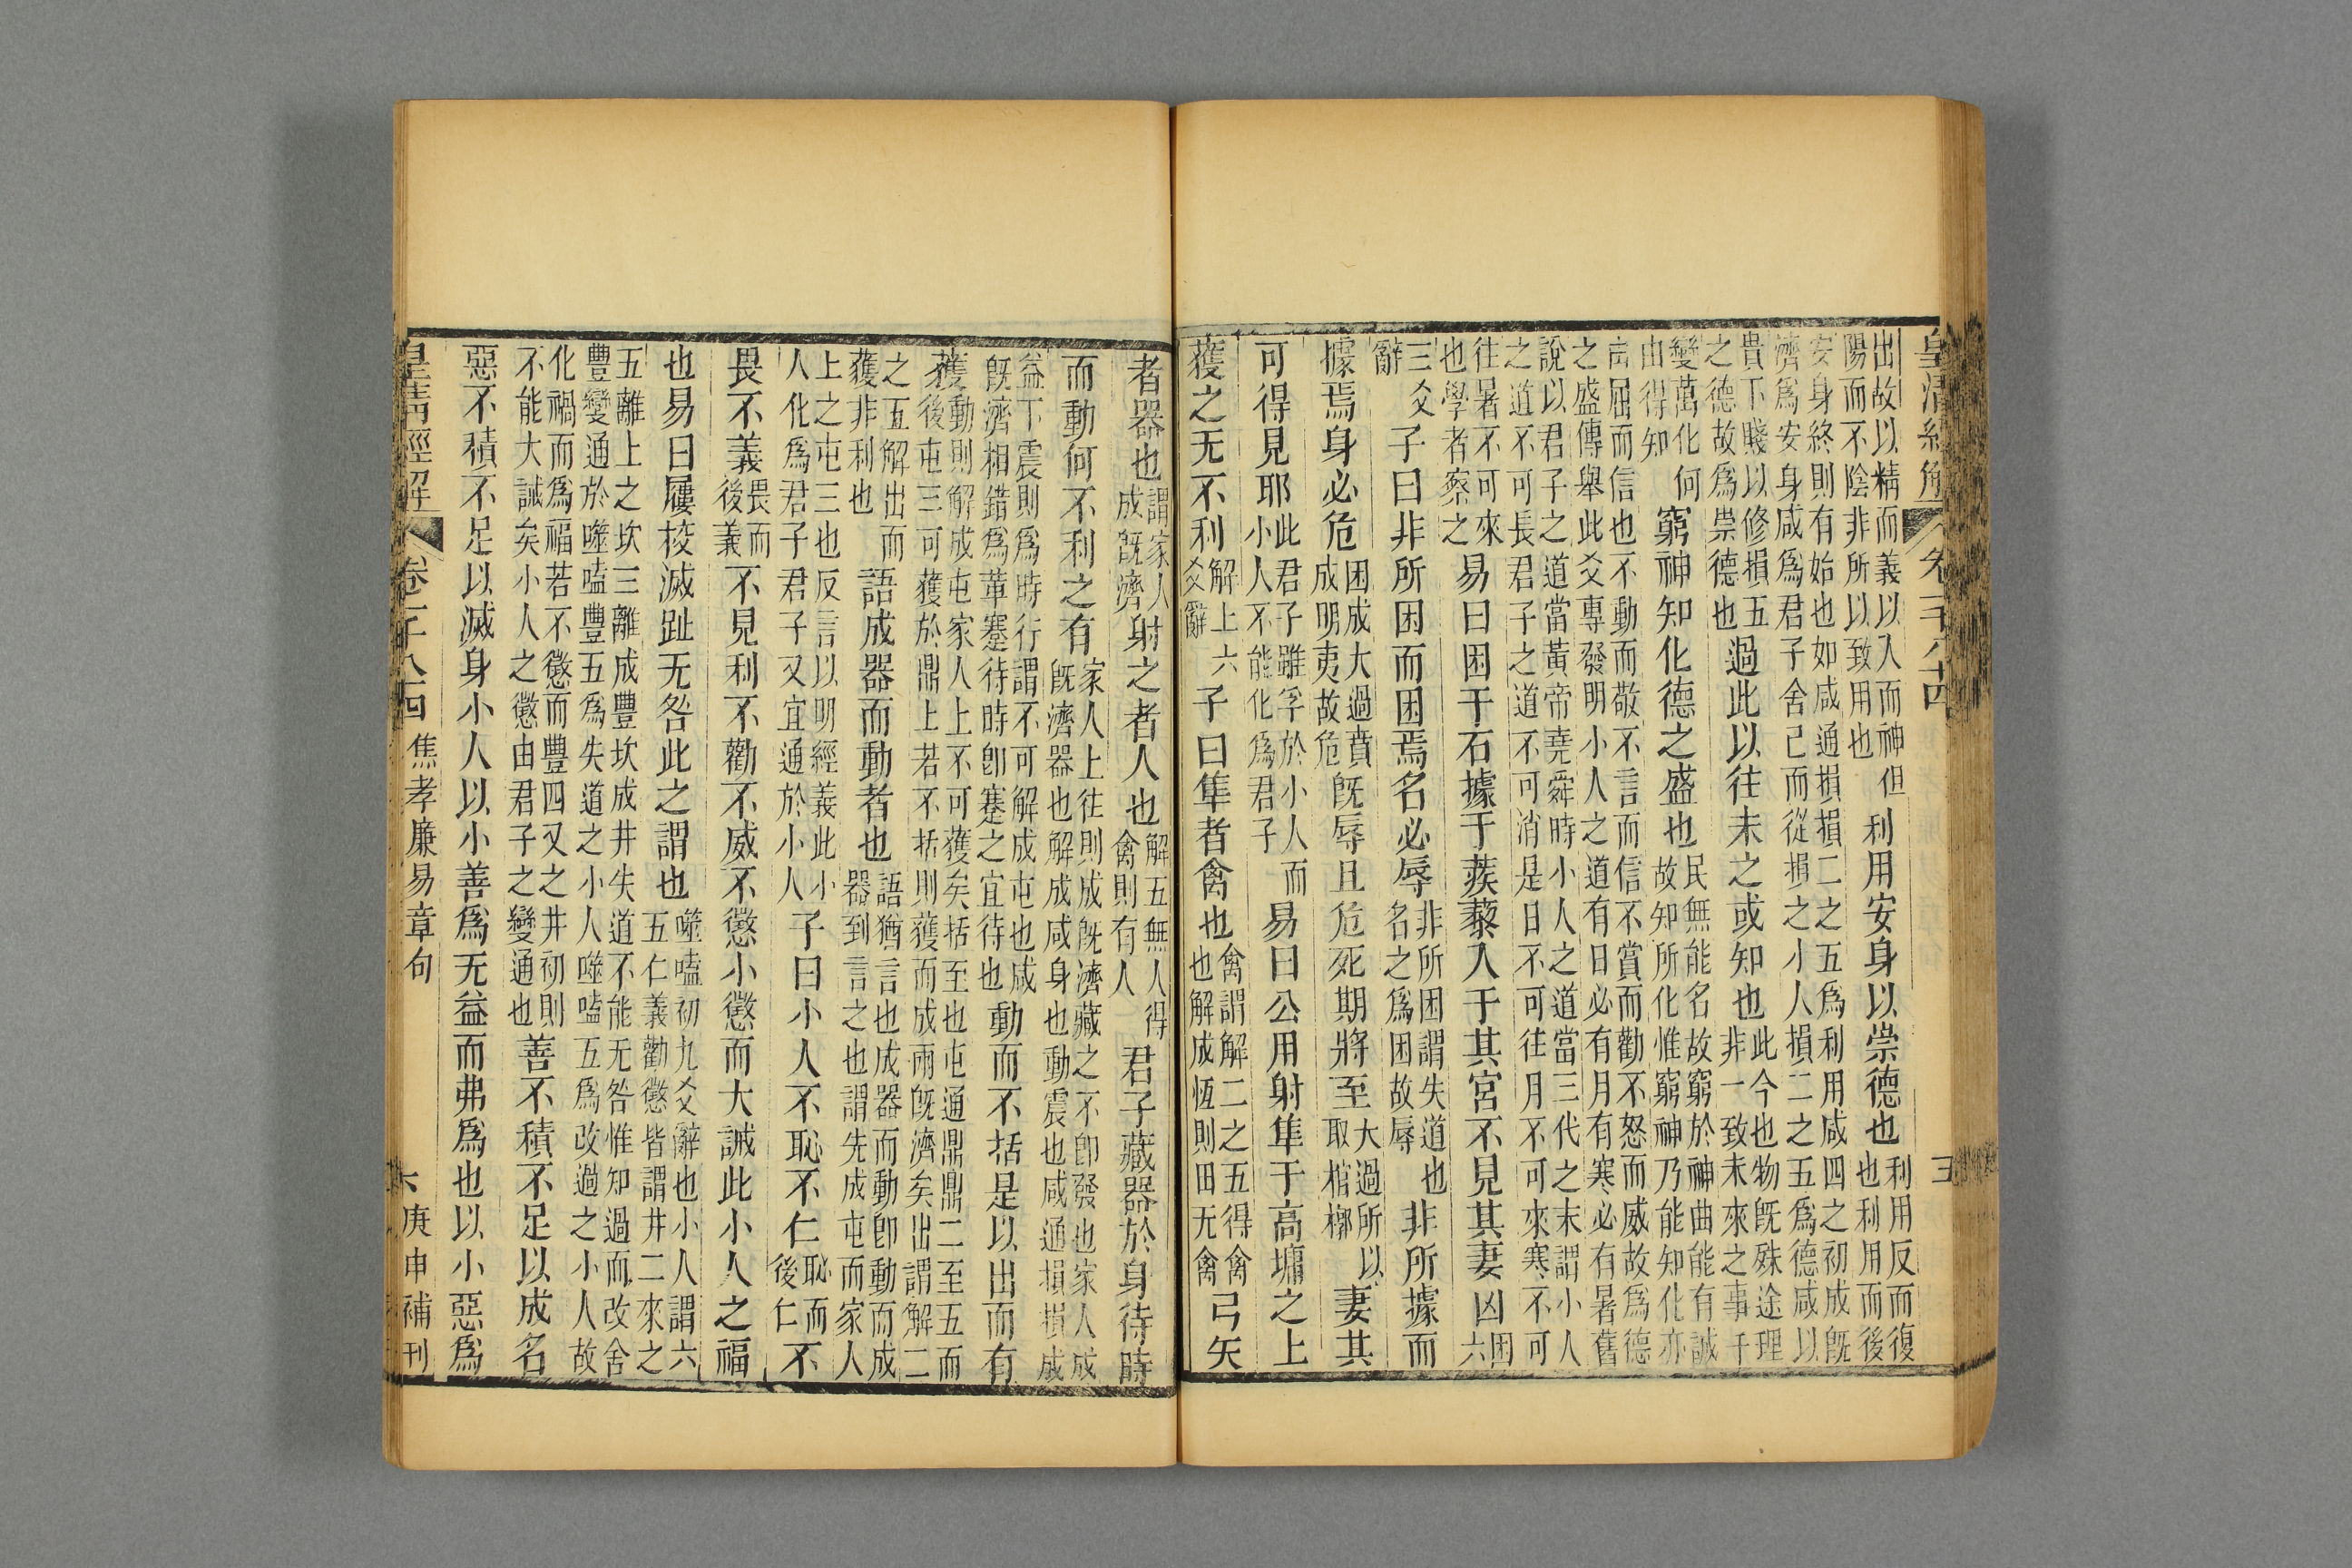 皇清經解 卷一千八十四 三
出故以精而義以入而神但
陽而不陰非所以致用也
利用安身以崇德也
利用反而復
也利用而後
安身終則有始也如咸通損損二之五爲利用咸四之初成既
濟爲安身咸爲君子舍己而從損之小人損二之五爲德咸以
貴下賤以修損五
之德故爲崇德也
過此以往未之或知也
此今也物既殊途理
非一致未來之事千
變萬化何
由得知
窮神知化德之盛也
民無能名故窮於神曲能有誠
故知所化惟窮神乃能知化亦
言屈而信也不動而敬不言而信不賞而勸不怒而威故爲德
之盛傳舉此爻專發明小人之道有日必有月有寒必有暑舊
說以君子之道當黃帝堯舜時小人之道當三代之末謂小人
之道不可長君子之道不可消是日不可往月不可來寒不可
往暑不可來
也學者察之
易曰困于石據于蒺藜入于其宮不見其妻凶
困
六
三爻
辭
子曰非所困而困焉名必辱
非所困謂失道也
名之爲困故辱
非所據而
據焉身必危
困成大過賁
成明夷故危
既辱且危死期將至
大過所以
取棺槨
妻其
可得見耶
此君子雖孚於小人而
小人不能化爲君子
易曰公用射隼于高墉之上
獲之无不利
解上六
爻辭
子曰隼者禽也
禽謂解二之五得禽
也解成恆則田无禽
弓矢
者器也
謂家人
成既濟
射之者人也
解五無人得
禽則有人
君子藏器於身待時
而動何不利之有
家人上往則成既濟藏之不卽發也家人成
既濟器也解成咸身也動震也咸通損損成
益下震則爲時行謂不可解成屯也咸
既濟相錯爲革蹇待時卽蹇之宜待也
動而不括是以出而有
獲
動則解成屯家人上不可獲矣括至也屯通鼎鼎二至五而
後屯三可獲於鼎上若不括則獲而成兩既濟矣出謂解二
之五解出而
獲非利也
語成器而動者也
語猶言也成器而動卽動而成
器到言之也謂先成屯而家人
上之屯三也反言以明經義此小
人化爲君子君子又宜通於小人
子曰小人不恥不仁
恥而
後仁
不
畏不義
畏而
後義
不見利不勸不威不懲小懲而大誡此小人之福
也易曰屨校滅趾无咎此之謂也
噬嗑初九爻辭也小人謂六
五仁義勸懲皆謂井二來之
五離上之坎三離成豐坎成井失道不能无咎惟知過而改舍
豐變通於噬嗑豐五爲失道之小人噬嗑五爲改過之小人故
化禍而爲福若不懲而豐四又之井初則
不能大誡矣小人之懲由君子之變通也
善不積不足以成名
惡不積不足以滅身小人以小善爲无益而弗爲也以小惡爲
皇清經解 卷一千八百 焦孝廉易章句 六 庚申補刊